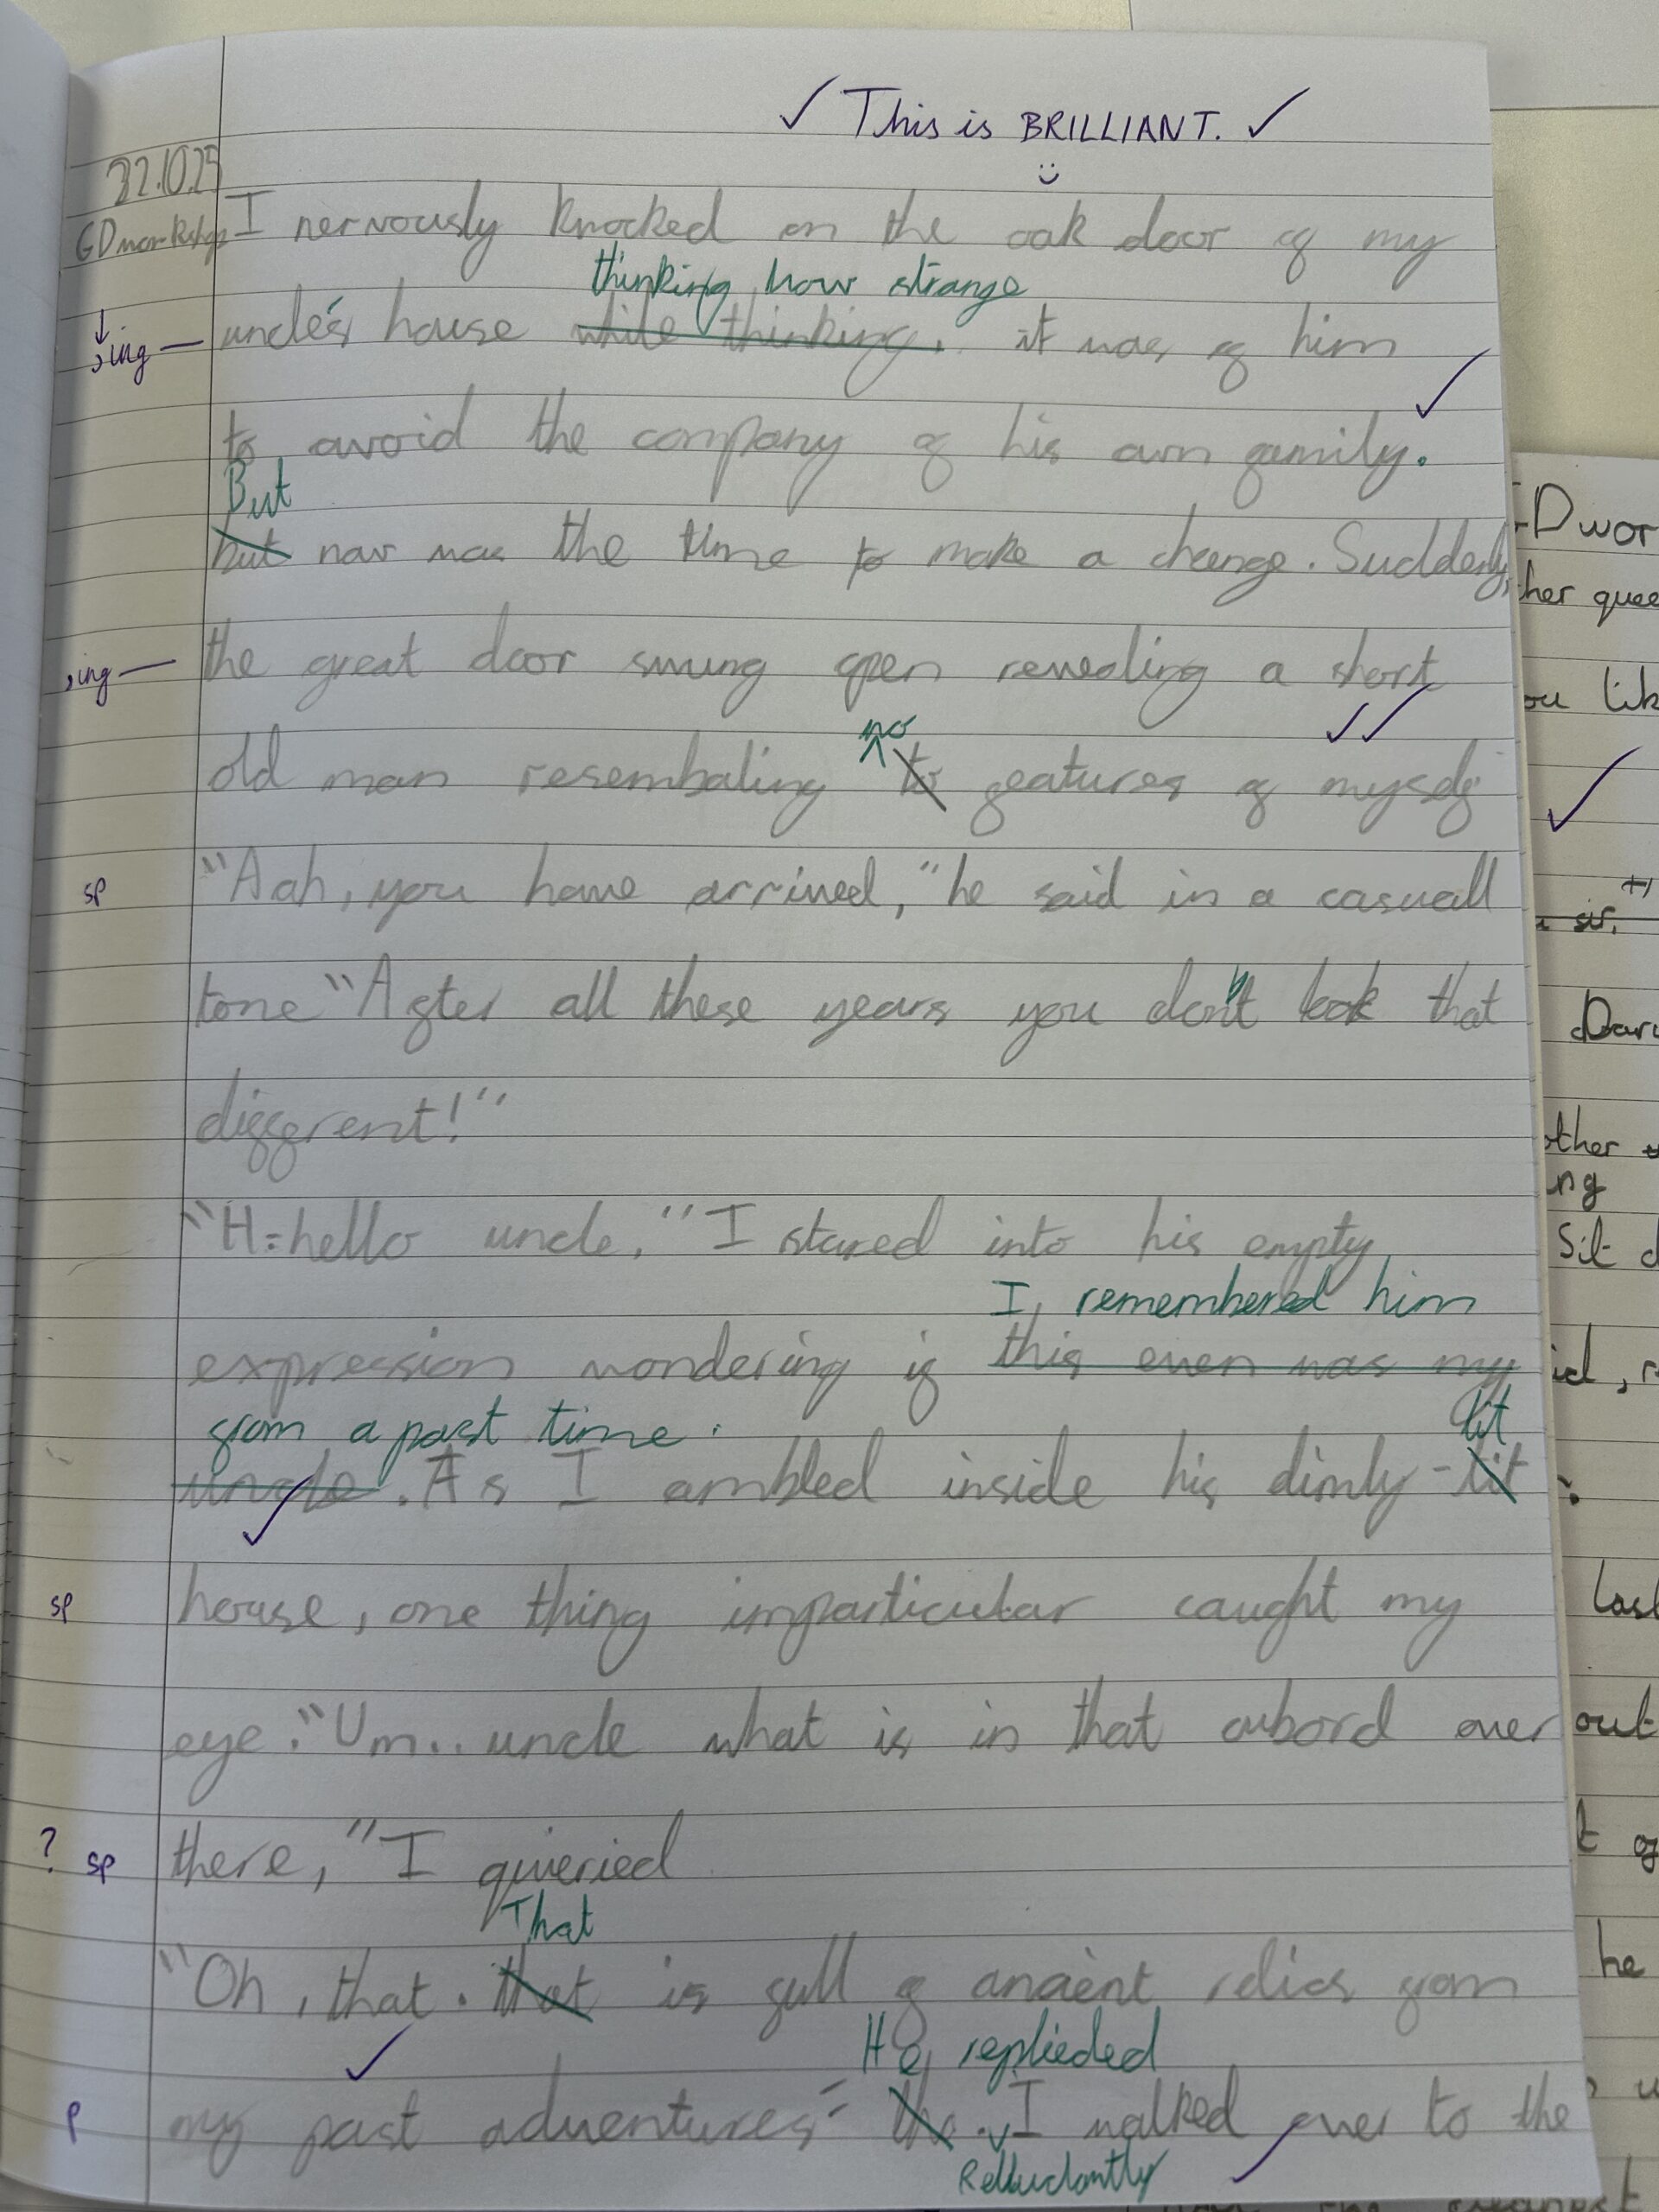 ✓ This is BRILLIANT. ✓
22.10.25
GD workshop
I nervously knocked on the oak door of my
thinking how strange
,ing — uncle's house while thinking. it was of him
to avoid the company of his own family.
But
but now was the time to make a change. Suddenly,
,ing — the great door swung open revealing a short
no
old man resembaling to features of myself
sp "Aah, you have arrived," he said in a casuall
tone "After all these years you don't look that
different!"
"H-hello uncle," I stared into his empty
I remembered him
expression wondering if this even was my
from a past time. lit
uncle. As I ambled inside his dimly-lit
sp house, one thing imparticular caught my
eye. "Um.. uncle what is in that cubord over
? sp there," I quieried
That
"Oh, that. that is full of ancient relics from
He replieded
p my past adventures" the. I walked over to the
Relluctantly
GD wor
her quee
ou lik
sir,
Dar
other
ng
Sit d
id,
Last
out
t of
he